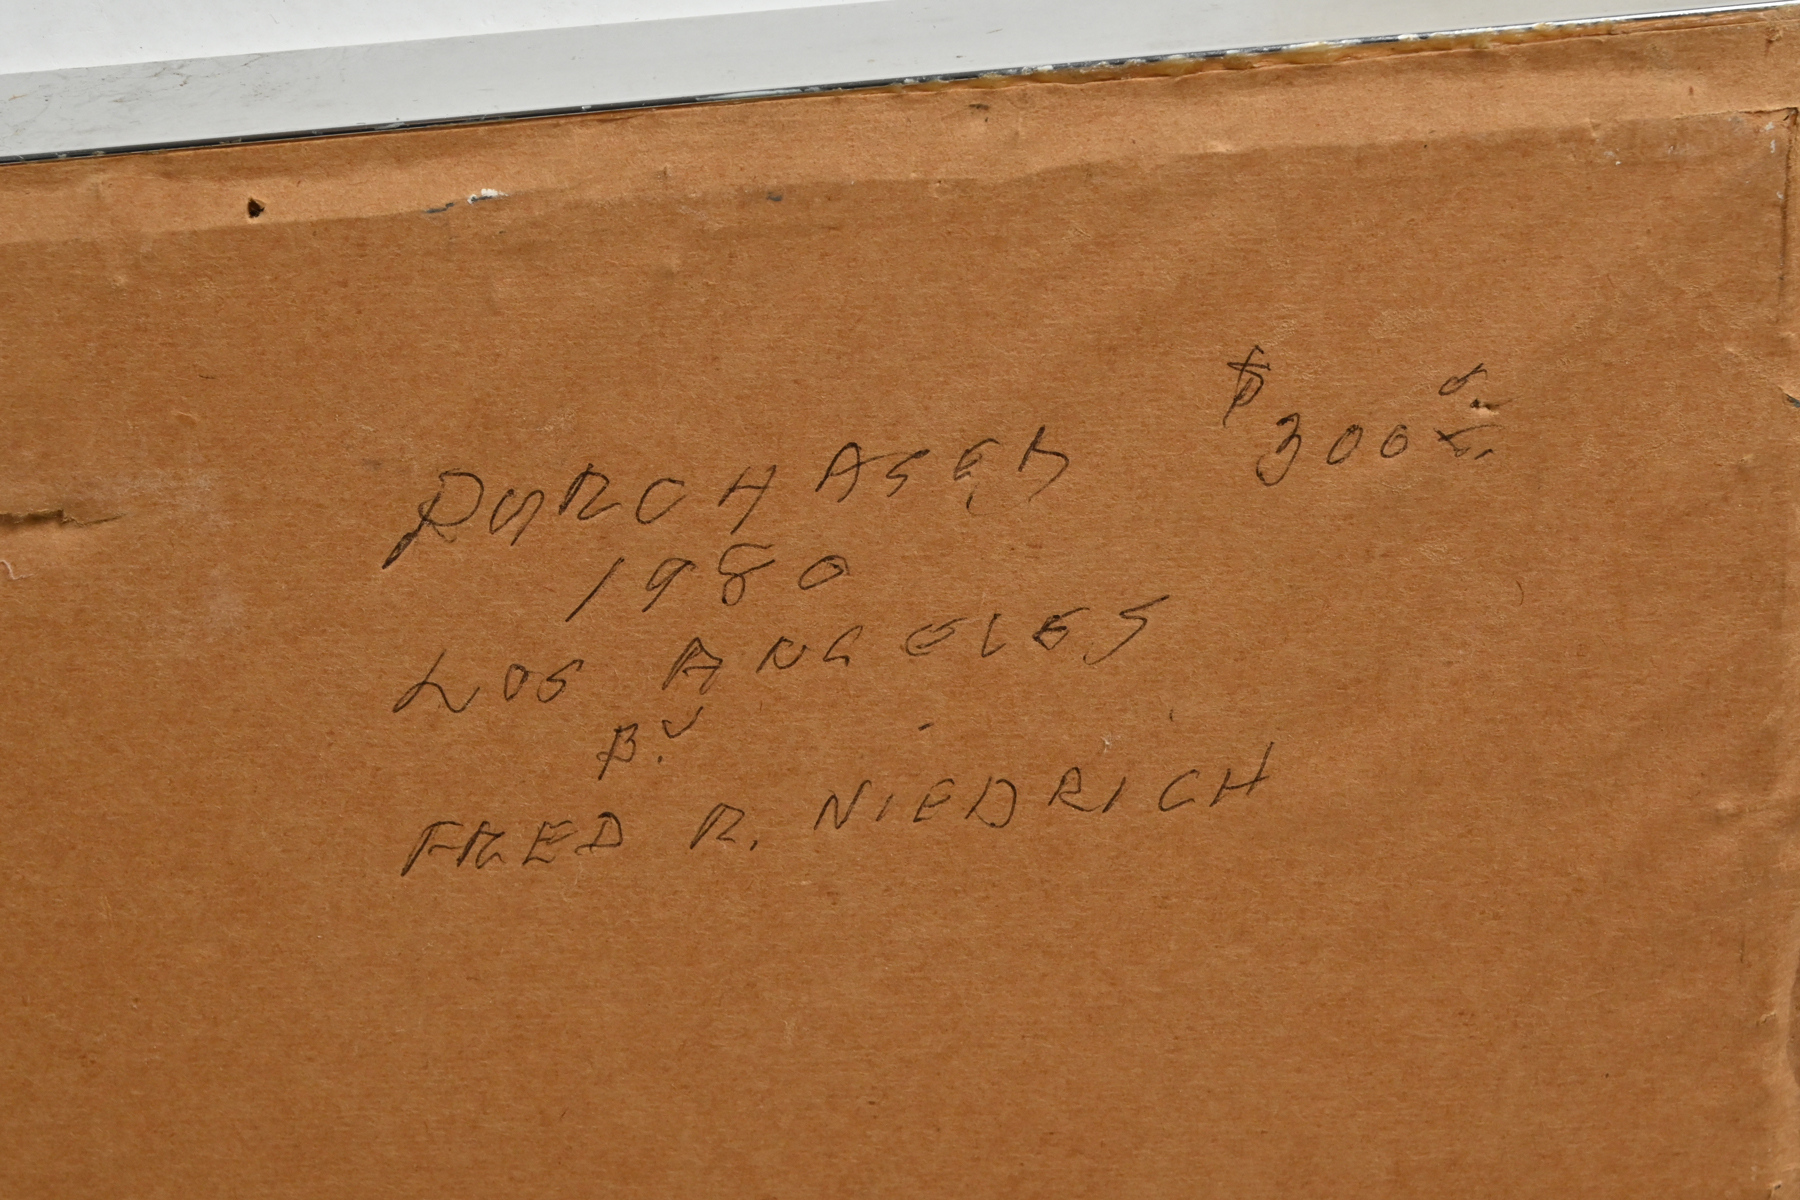 PURCHASED $300
1980
LOS ANGELES
BY
FRED R. NIEDRICH